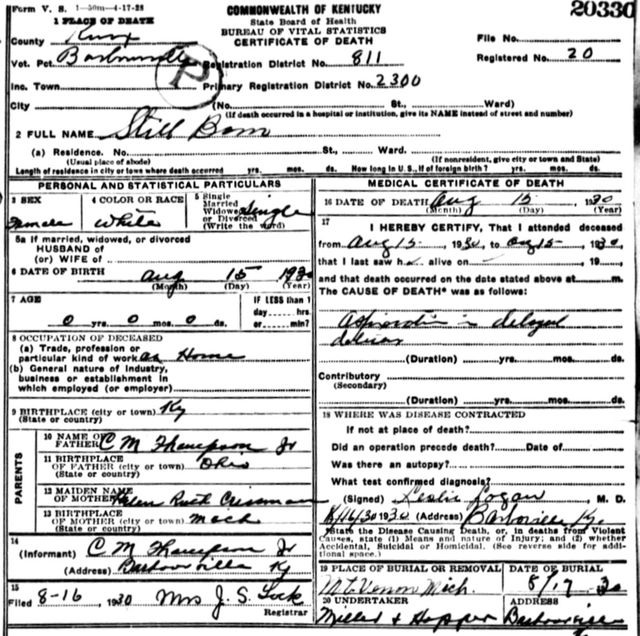 Form V. S. 1-50m-4-17-28
COMMONWEALTH OF KENTUCKY
State Board of Health
BUREAU OF VITAL STATISTICS
CERTIFICATE OF DEATH
20330
1 PLACE OF DEATH
County Knox
File No.
Vot. Pct. Barbourville Registration District No. 811
Registered No. 20
P
Inc. Town Primary Registration District No. 2300
City (No. St., Ward)
(If death occurred in a hospital or institution, give its NAME instead of street and number)
2 FULL NAME Still Born
(a) Residence. No. St., Ward.
(Usual place of abode) (If nonresident, give city or town and State)
Length of residence in city or town where death occurred yrs. mos. ds. How long in U. S., if of foreign birth? yrs. mos. ds.
PERSONAL AND STATISTICAL PARTICULARS
3 SEX Female
4 COLOR OR RACE White
5 Single Married Widowed or Divorced (Write the word) Single
5a If married, widowed, or divorced
HUSBAND of
(or) WIFE of
6 DATE OF BIRTH Aug 15 1930
(Month) (Day) (Year)
7 AGE
0 yrs. 0 mos. 0 ds.
IF LESS than 1
day hrs.
or min?
8 OCCUPATION OF DECEASED
(a) Trade, profession or
particular kind of work at Home
(b) General nature of industry,
business or establishment in
which employed (or employer)
9 BIRTHPLACE (city or town) Ky
(State or country)
PARENTS
10 NAME OF
FATHER C M Thompson Jr
11 BIRTHPLACE
OF FATHER (city or town) Ohio
(State or country)
12 MAIDEN NAME
OF MOTHER Helen Ruth
13 BIRTHPLACE
OF MOTHER (city or town) Mich
(State or country)
14
(Informant) C M Thompson Jr
(Address) Barbourville Ky
15
Filed 8-16, 1930 Mrs J. S. Lock
Registrar
MEDICAL CERTIFICATE OF DEATH
16 DATE OF DEATH Aug 15 1930
(Month) (Day) (Year)
17
I HEREBY CERTIFY, That I attended deceased
from Aug 15, 1930, to Aug 15, 1930,
that I last saw h alive on , 19 ,
and that death occurred on the date stated above at m.
The CAUSE OF DEATH* was as follows:
in delayed
(Duration) yrs. mos. ds.
Contributory
(Secondary)
(Duration) yrs. mos. ds.
18 WHERE WAS DISEASE CONTRACTED
If not at place of death?
Did an operation precede death? Date of
Was there an autopsy?
What test confirmed diagnosis?
(Signed) Leslie Logan, M. D.
8/16/30 1930 (Address) Barbourville Ky.
*State the Disease Causing Death, or, in deaths from Violent
Causes, state (1) Means and nature of Injury; and (2) whether
Accidental, Suicidal or Homicidal. (See reverse side for addi-
tional space.)
19 PLACE OF BURIAL OR REMOVAL DATE OF BURIAL
Mt Vernon Mich. 8/17 30
20 UNDERTAKER ADDRESS
Miller & Hopper Barbourville